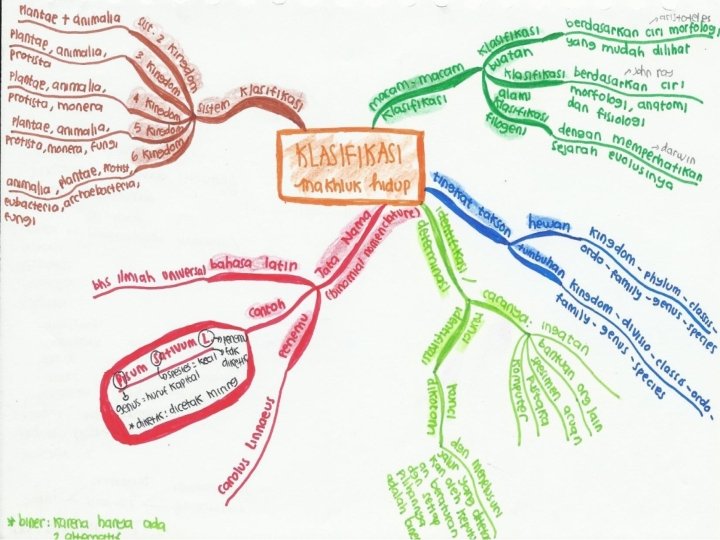 KLASIFIKASI
makhluk hidup
sistem klasifikasi
sist. 2 kingdom
plantae + animalia
3 kingdom
plantae, animalia,
protista
4 kingdom
plantae, animalia,
protista, monera
5 kingdom
plantae, animalia,
protista, monera, fungi
6 kingdom
animalia, plantae, protist
eubacteria, archaebacteria,
fungi
macam-macam
klasifikasi
klasifikasi
buatan
aristoteles
berdasarkan ciri morfologi
yang mudah dilihat
klasifikasi
alami
john ray
berdasarkan ciri
morfologi, anatomi
dan fisiologi
klasifikasi
filogeni
darwin
dengan memperhatikan
sejarah evolusinya
tingkat takson
hewan
kingdom - phylum - classis -
ordo - family - genus - species
tumbuhan
kingdom - divisio - classis - ordo -
family - genus - species
identifikasi /
determinasi
caranya:
ingatan
bantuan org lain
spesimen acuan
pustaka
komputer
kunci
identifikasi
kunci
dikotom
dan menelusuri
jalur yang
kan oleh
an beraturan
dan setiap
pilihannya
adalah
Tata Nama
(binomial nomenclature)
bahasa latin
bhs ilmiah universal
contoh
Pisum Sativum L
penemu
tdk
diketik
spesies = kecil
genus = huruf kapital
* diketik : dicetak miring
penemu
carolus linnaeus
* biner : karena hanya ada
2 alternatif